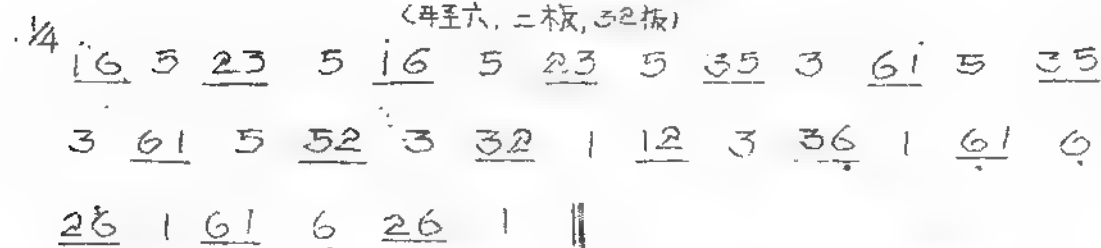 (毋至六, 二板, 32板)
1/4 i6 5 23 5 i6 5 23 5 35 3 6i 5 35
3 61 5 52 3 32 1 12 3 36̣ 1 6̣1 6̣
26 1 61 6 26 1 ‖